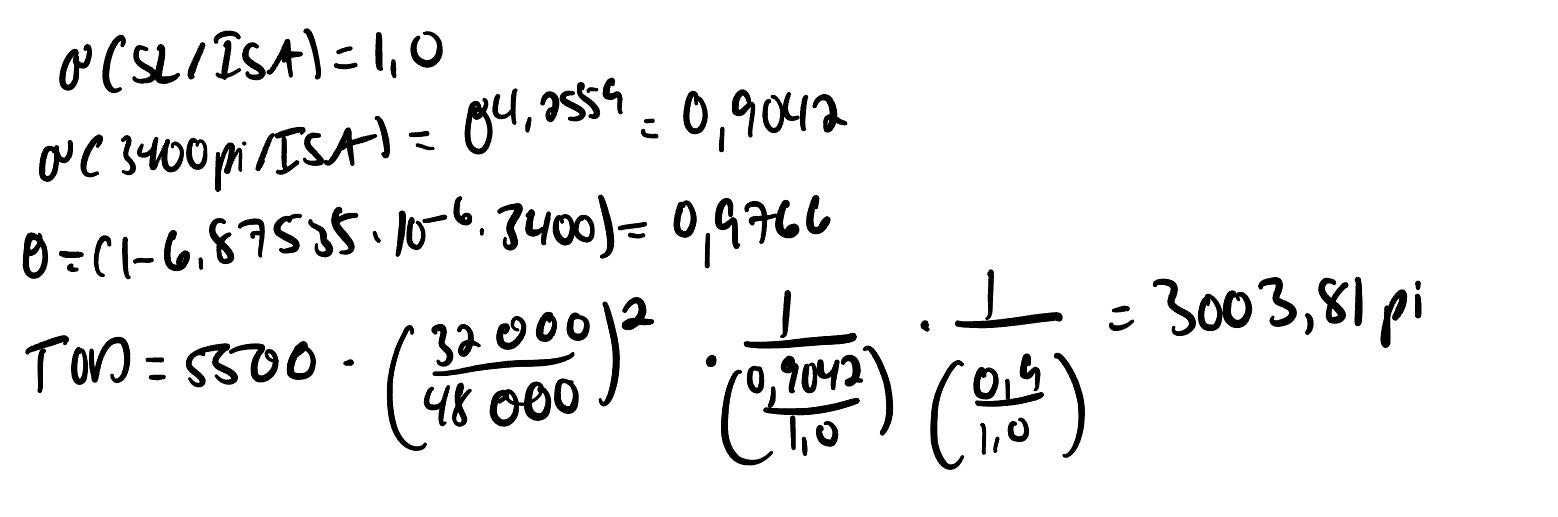 σ(SL/ISA)=1,0
σ(3400pi/ISA) = θ^4,2559 = 0,9042
θ=(1-6,87535·10^-6·3400)= 0,9766
TOD = 5500 · (32 000/48 000)^2 · 1/(0,9042/1,0) · 1/(0,9/1,0) = 3003,81 pi